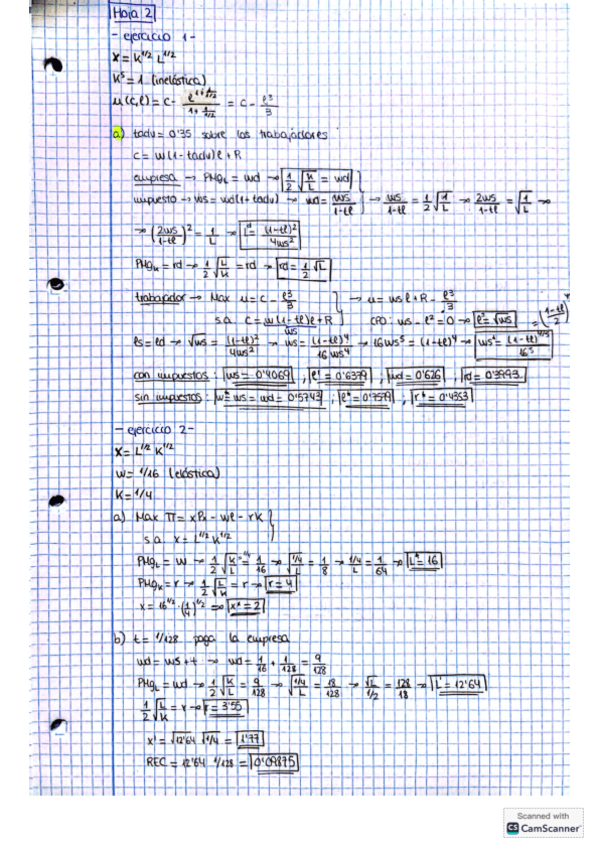 Hoja 2
- ejercicio 1 -
X = K^1/2 L^1/2
K^s = 1 (inelástica)
u(c,l) = c - l^(1+1/(1/2)) / (1+1/(1/2)) = c - l³/3
a) tadv = 0'35 sobre los trabajadores
c = w(1-tadv)l + R
empresa → PMg_L = wd → 1/2 √(K/L) = wd
impuesto → ws = wd(1+tadv) → wd = ws/(1-tl) → ws/(1-tl) = 1/2 √(1/L) → 2ws/(1-tl) = √(1/L) →
→ (2ws/(1-tl))² = 1/L → l^d = (1-tl)²/4ws²
PMg_K = rd → 1/2 √(L/K) = rd → rd = 1/2 √L
trabajador → Max u = c - l³/3 → u = ws l + R - l³/3
s.a. c = w(1-tl)l + R CPO: ws - l² = 0 → l^s = √ws
ws
ls = ld → √ws = (1-tl)²/4ws² → ws = (1-tl)⁴/16ws⁴ → 16ws⁵ = (1-tl)⁴ → ws' = (1-tl)^4/5 / 16^5
con impuestos: ws = 0'4069 ; l' = 0'6379 ; wd = 0'626 ; rd = 0'3993
sin impuestos: w* = ws = wd = 0'5743 ; l* = 0'7579 ; r* = 0'4353
- ejercicio 2 -
X = L^1/2 K^1/2
w = 1/16 (elástica)
K = 1/4
a) Max Π = xPx - wl - rK
s.a. x = L^1/2 K^1/2
PMg_L = w → 1/2 √(K/L) = 1/16 → √((1/4)/L) = 1/8 → (1/4)/L = 1/64 → L* = 16
PMg_K = r → 1/2 √(L/K) = r → r = 4
x = 16^1/2 · (1/4)^1/2 ⇒ x* = 2
b) t = 1/128 paga la empresa
wd = ws + t → wd = 1/16 + 1/128 = 9/128
PMg_L = wd → 1/2 √(K/L) = 9/128 → √((1/4)/L) = 18/128 → √L/(1/2) = 128/18 → L' = 12'64
1/2 √(L/K) = r → r = 3'55
x' = √12'64 √1/4 = 1'77
REC = 12'64 · 1/128 = 0'09875
Scanned with
CS CamScanner